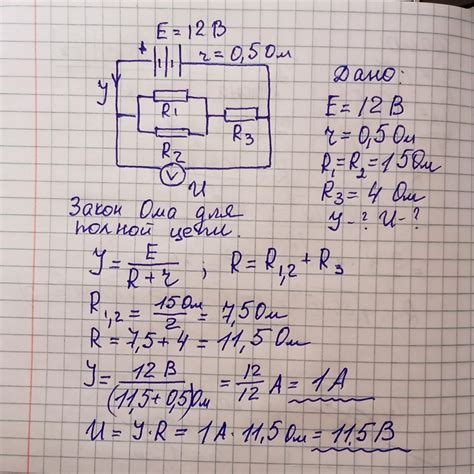 E = 12 В
+
r = 0,5 Ом
У
R1
R2
R3
V
U
Дано:
E = 12 В
r = 0,5 Ом
R1 = R2 = 15 Ом
R3 = 4 Ом
У - ? U - ?
Закон Ома для
полной цепи.
У = E / (R + r) ; R = R1,2 + R3
R1,2 = 15 Ом / 2 = 7,5 Ом
R = 7,5 + 4 = 11,5 Ом
У = 12 В / (11,5 + 0,5) Ом = 12/12 А = 1 А
U = У · R = 1 А · 11,5 Ом = 11,5 В